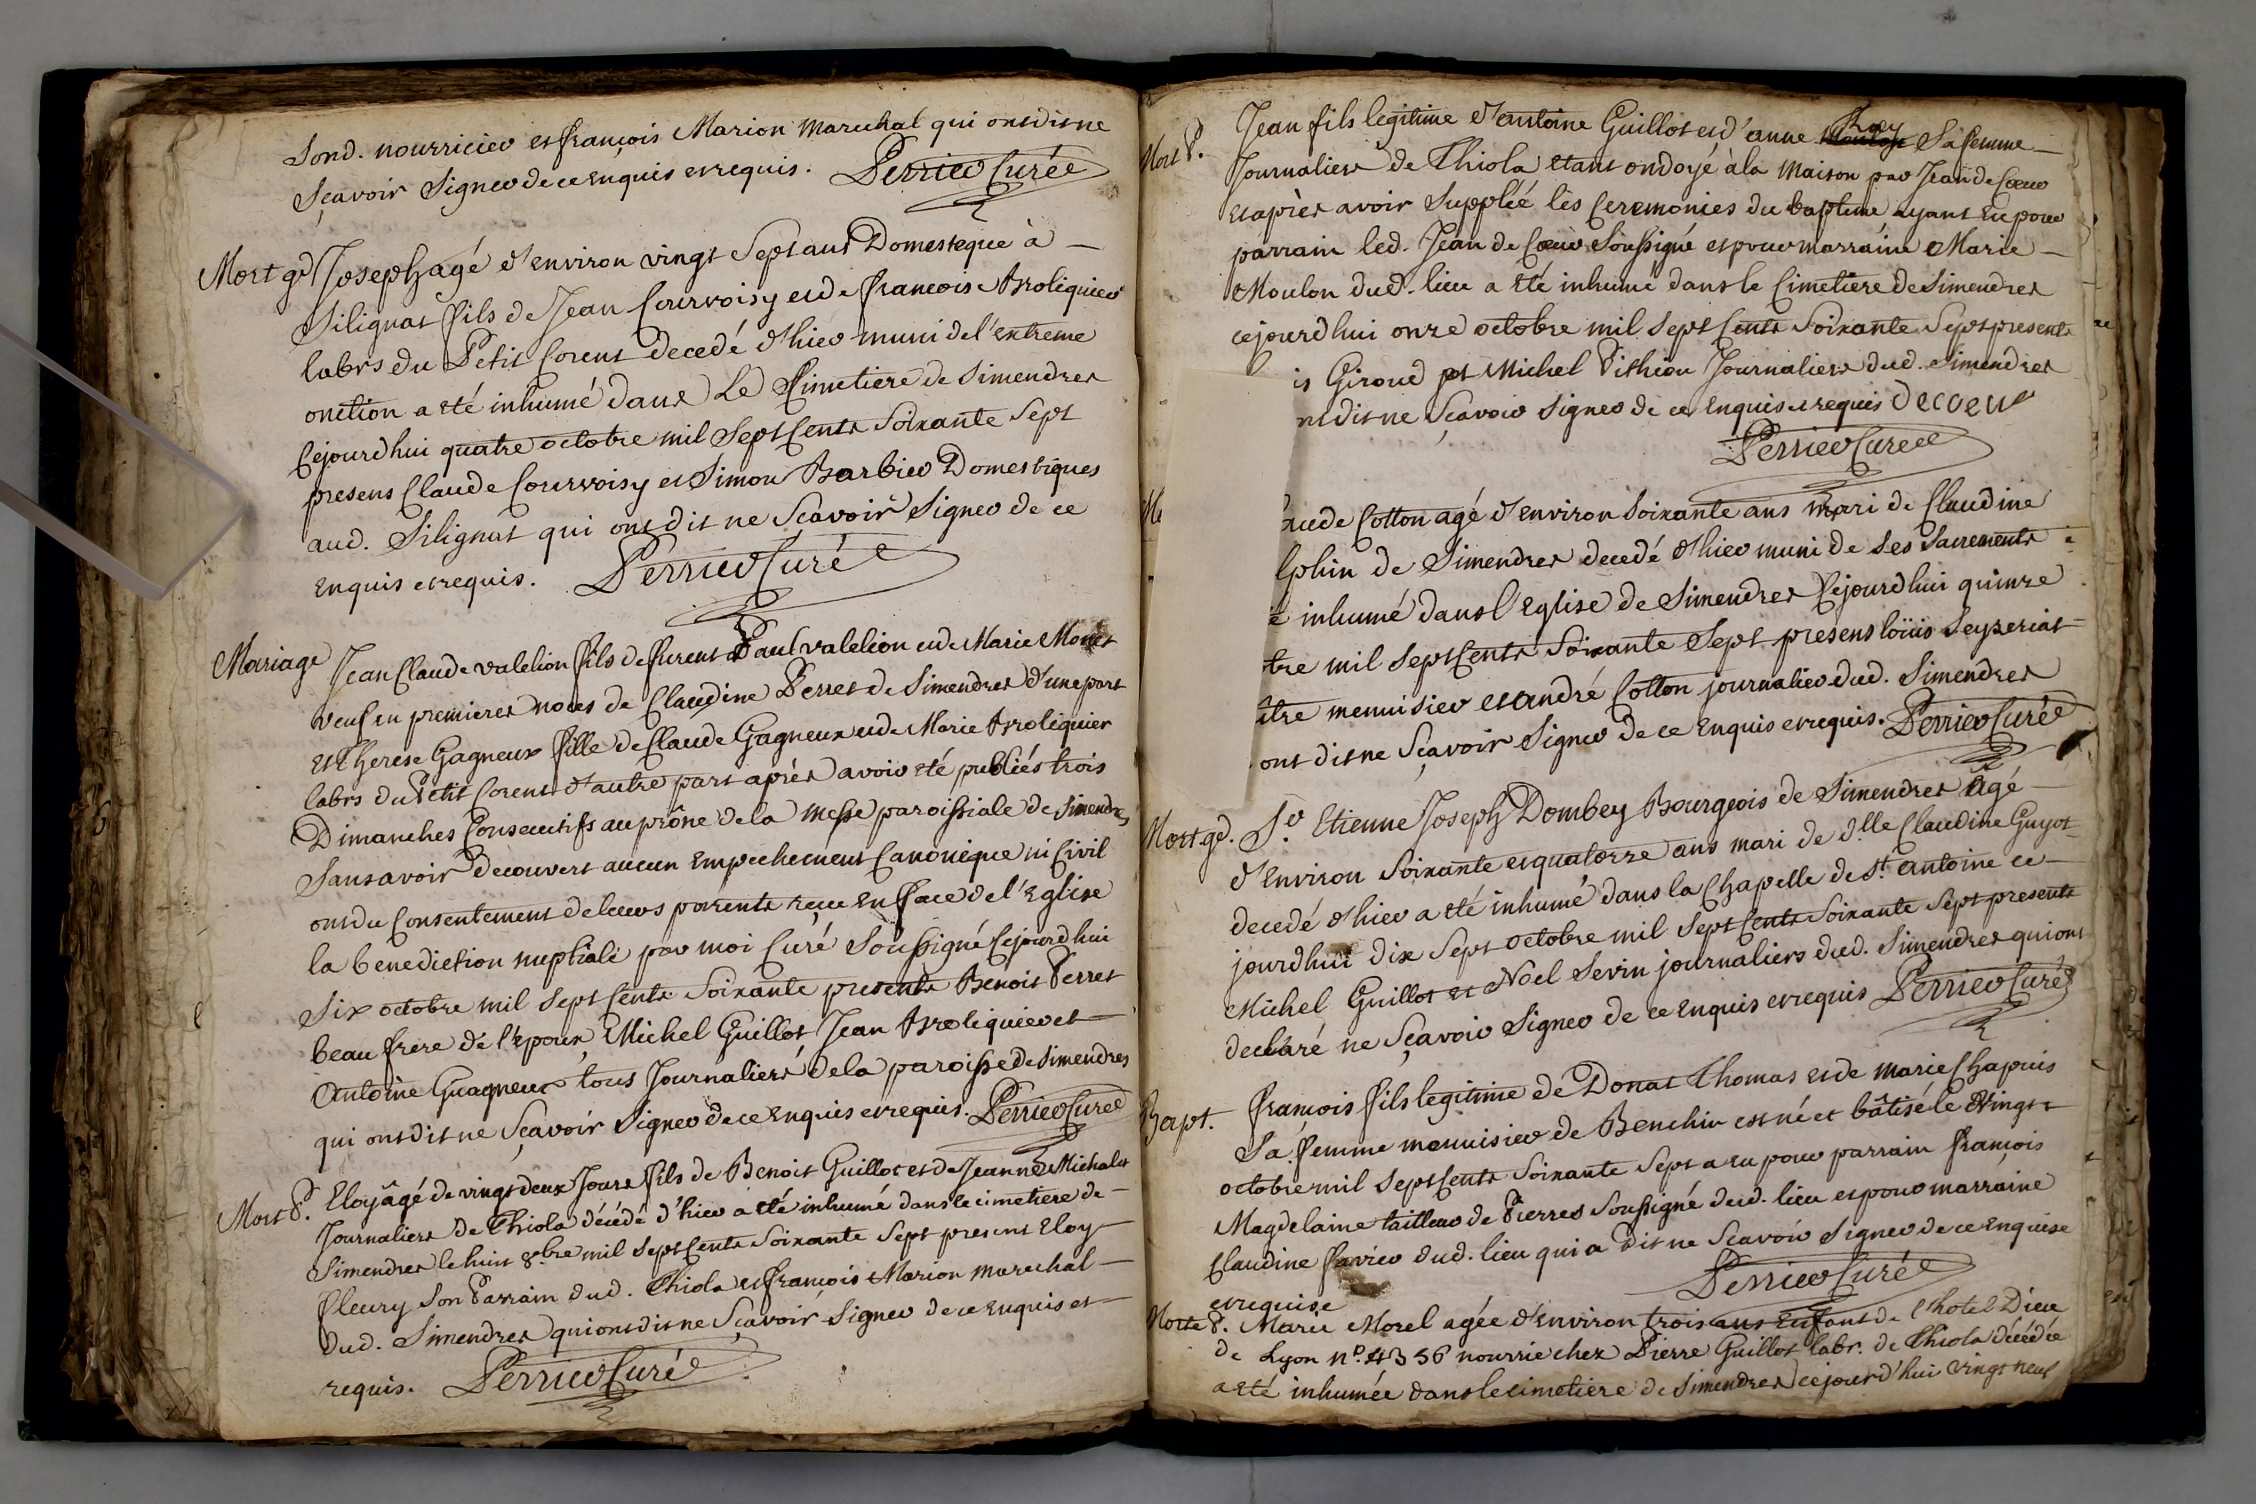 Sond. nourricier et françois Marion marechal qui ont dit ne
sçavoir signer de ce enquis et requis. Perrier Curé
Mort gd Joseph agé d'environ vingt sept ans Domestique à
Silignat fils de Jean Courvoisy et de francoise Broliquier
labrs du Petit Corent decedé d'hier muni de l'extreme
onction a eté inhumé dans le Cimetiere de Simendres
Cejourdhui quatre octobre mil sept Cents soixante sept
presens Claude Courvoisy et Simon Barbier Domestiques
aud. Silignat qui ont dit ne sçavoir signer de ce
enquis et requis. Perrier Curé
Mariage Jean Claude valelion fils de furent Paul valelion et de Marie Monet
veuf en premieres noces de Claudine Perret de Simendres d'une part
et Therese Gagneux fille de Claude Gagneux et de Marie Broliquier
labrs du Petit Corent d'autre part après avoir eté publiés trois
Dimanches Consecutifs au prône de la messe paroissiale de Simendres
sans avoir decouvert aucun empechement Canonique ni Civil
ont du Consentement de leurs parents reçu en face de l'Eglise
la benediction nuptiale par moi Curé soussigné Cejourdhui
six octobre mil sept Cents soixante presents Benoit Perret
beau frere de l'epoux, Michel Guillot Jean Broliquier et
Antoine Guagneux tous Journaliers de la paroisse de Simendres
qui ont dit ne sçavoir signer de ce enquis et requis. Perrier Curé
Mort P. Eloy âgé de vingt deux Jours fils de Benoit Guillot et de Jeanne Michalet
Journaliers de Thiola décédé d'hier a eté inhumé dans le cimetiere de
Simendres le huit 8.bre mil sept Cents soixante sept presens Eloy
fleury son Parrain dud. Thiola et françois Marion marechal
dud. Simendres qui ont dit ne sçavoir signer de ce enquis et
requis. Perrier Curé
Mort P. Jean fils legitime d'antoine Guillot et d'anne Roey sa femme
Journaliers de Thiola etant ondoyé à la maison par Jean de Cœur
et après avoir supplée les Ceremonies du baptême ayant eu pour
parrain led. Jean de Cœur soussigné et pour marraine Marie
Moulon dud. lieu a eté inhumé dans le Cimetiere de Simendres
cejourdhui onze octobre mil sept Cents soixante sept presents
is Giroud et Michel Pithiou Journaliers dud. Simendres
nt dit ne sçavoir signer de ce enquis et requis decoeur
Perrier Curé
aude Cotton agé d'environ soixante ans mari de Claudine
lphin de Simendres decedé d'hier muni de ses sacrements
é inhumé dans l'eglise de Simendres Cejourdhui quinze
bre mil sept Cents soixante sept presens loüis seyzeriat
itre menuisier et andré Cotton journalier dud. Simendres
ont dit ne sçavoir signer de ce enquis et requis. Perrier Curé
Mort gd. Sr Etienne Joseph Dombey Bourgeois de Simendres âgé
d'environ soixante et quatorze ans mari de d.lle Claudine Guyot
decedé d'hier a eté inhumé dans la Chapelle de St. antoine ce
jourdhui dix sept octobre mil sept Cents soixante sept presents
Michel Guillot et Noel Sevin journaliers dud. Simendres qui ont
declaré ne sçavoir signer de ce enquis et requis Perrier Curé
Bapt. françois fils legitime de Donat Thomas et de marie Chapuis
sa femme menuisier de Benchin est né et bâtisé le vingt
octobre mil sept Cents soixante sept a eu pour parrain françois
Magdelaine tailleur de Pierres soussigné dud. lieu et pour marraine
Claudine favier dud. lieu qui a dit ne sçavoir signer de ce enquise
et requise Perrier Curé
Morte P. Marie Morel agée d'environ trois ans enfant de l'hotel Dieu
de Lyon n.º 4356 nourrie chez Pierre Guillot labr. de Thiola décédée
a eté inhumée dans le cimetiere de Simendres cejourd'hui vingt neuf